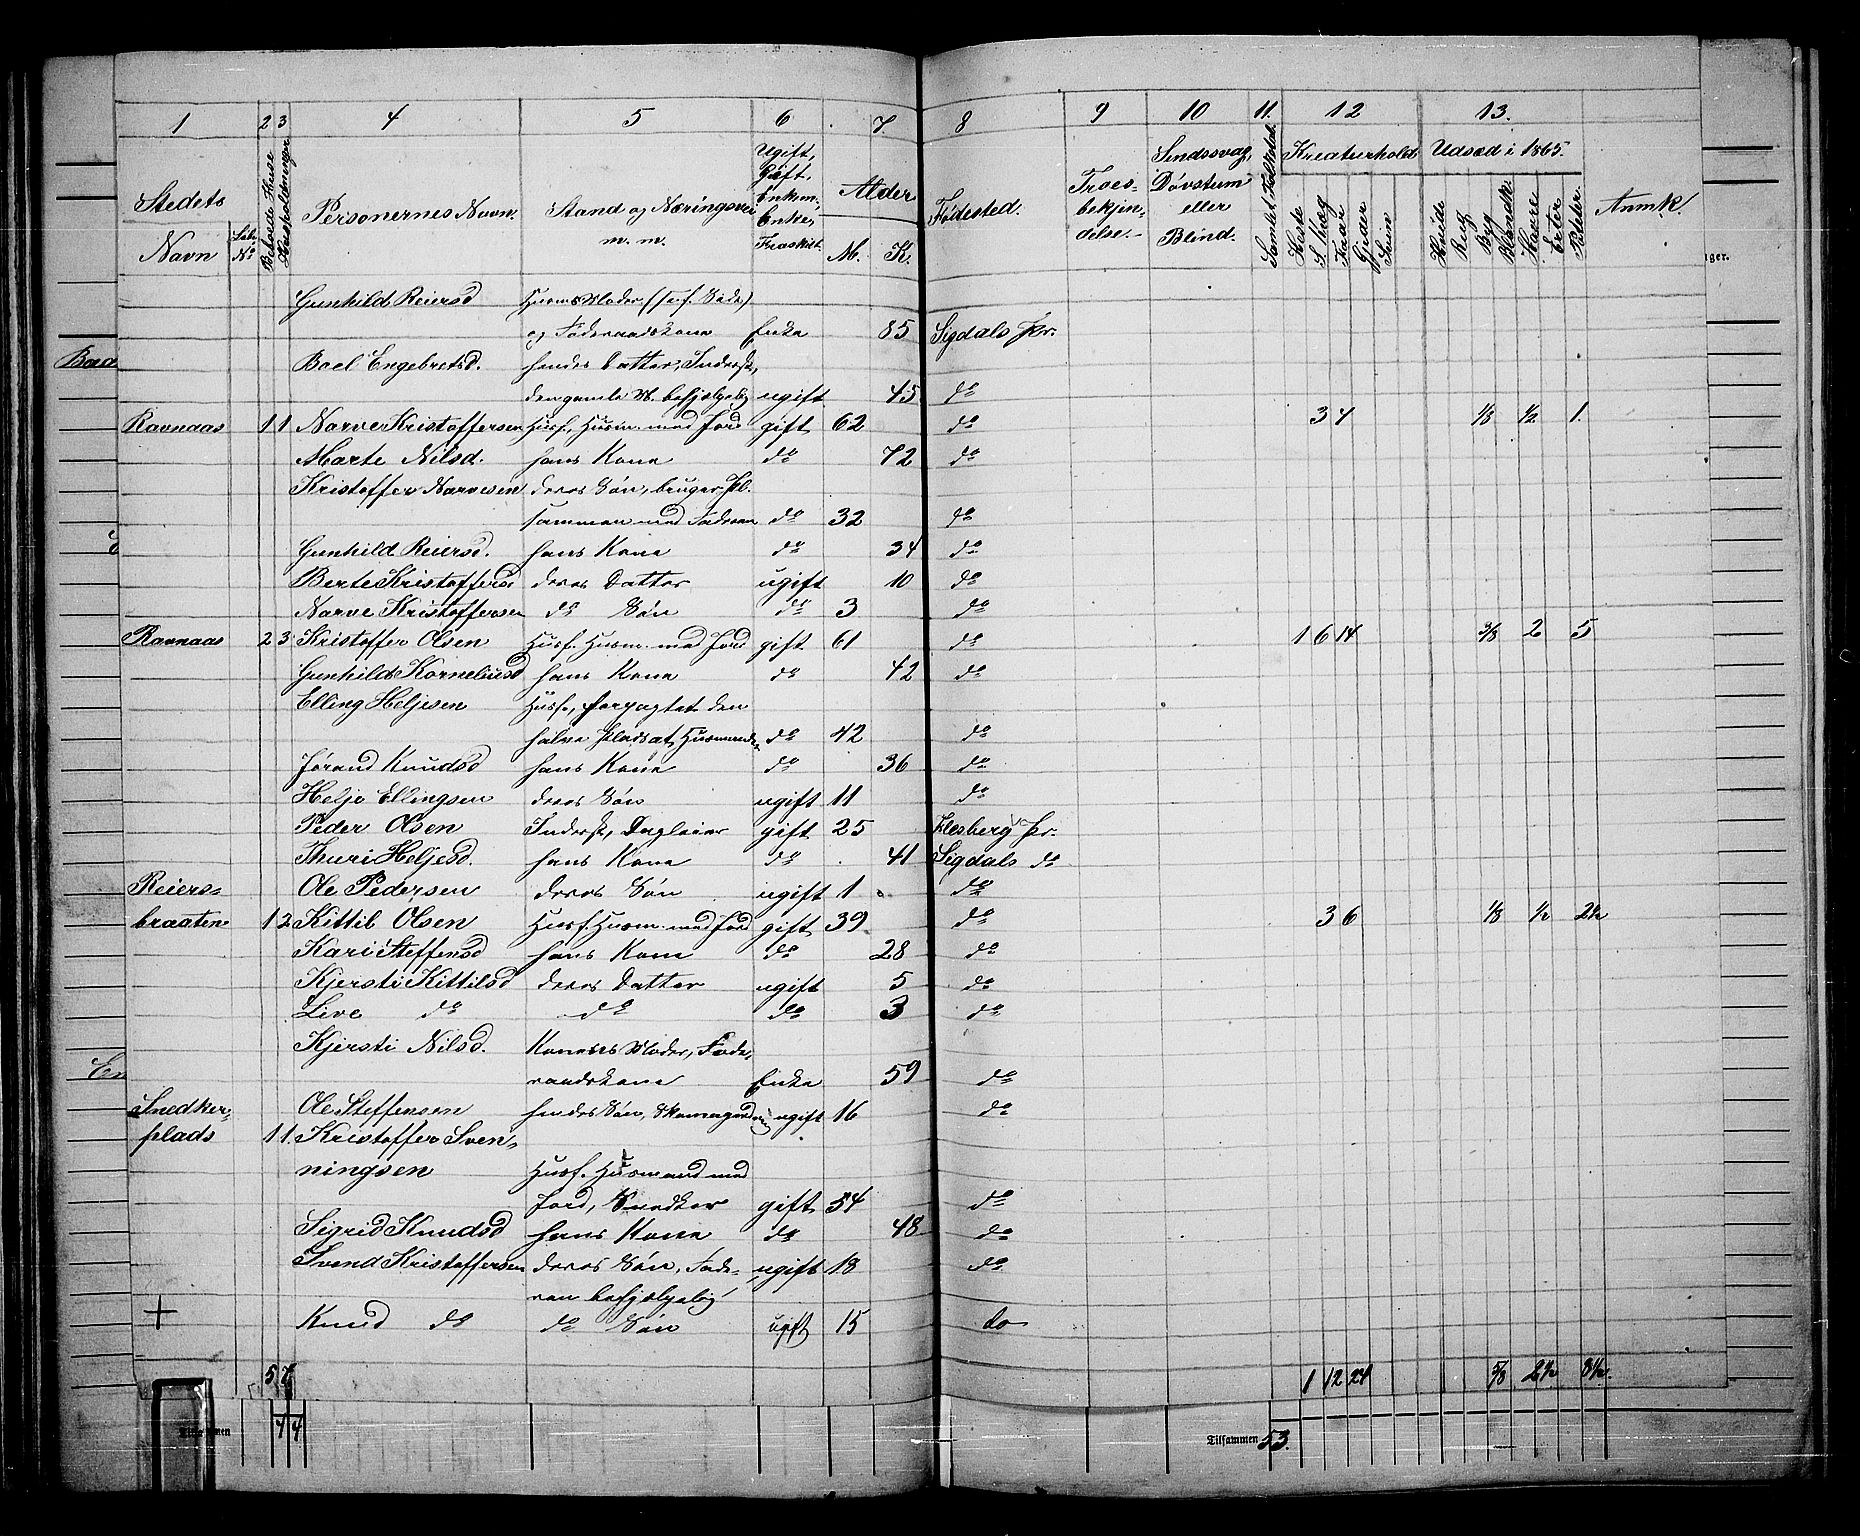 1 2 3 4 5 6 7. 8 9 10 11. 12 13.
Stedets Navn Løb. No Beboede Huse Huusholdninger Personernes Navn. Stand og Næringsvei m. m. Ugift, Gift, Enkem., Enke, Fraskilt. Alder M. K. Fødested. Troes-bekjen-delse. Sindssvag, Døvstum eller Blind. Samlet Folketal. Kreaturhold Heste S. Kvæg Faar Gjeder Sviin Udsæd i 1865. Hvede Rug Byg Blandk. Havre Erter Poteter Anmk.
Gunhild Reiersd Husms Moder
og Føderaadskone Enke 85 Sigdals Pr.
Boel Engebretsd. hendes Datter, Inderst,
den gamle M. behjælpelig ugift 45 do
Ravnaas 1 1 Narve Kristoffersen Husf., Husm. med Jord gift 62 do 3 4 1/8 1/2 1.
Marte Nilsd. hans Kone do 72 do
Kristoffer Narvesen deres Søn, bruger Pl.
sammen med Faderen do 32 do
Gunhild Reiersd. hans Kone do 34 do
Berte Kristoffersd deres Datter ugift 10 do
Narve Kristoffersen do Søn do 3 do
Ravnaas 2 3 Kristoffer Olsen Husf. Husm. med Jord gift 61 do 1 6 14 3/8 2 5
Gunhild Kornelusd hans Kone do 42 do
Elling Heljesen Husf., forpagtet den
halve Pladsat, Husmands do 42 do
Jørand Knudsd hans Kone do 36 do
Helje Ellingsen deres Søn ugift 11 do
Peder Olsen Inderst, Dagleier gift 25 Flesberg Pr.
Thuri Heljesd. hans Kone do 41 Sigdals do
Reiers- Ole Pedersen deres Søn ugift 1 do
braaten 1 2 Kittil Olsen Husf. Husm. med Jord gift 39 do 3 6 1/8 1/2 2 1/2
Kari Steffensd hans Kone do 28 do
Kjersti Kittilsd deres Datter ugift 5 do
Live do do do 3 do
Kjersti Nilsd. Konens Moder, Føde-
raadskone Enke 59 do
Snedker- Ole Steffensen hendes Søn, ugift 16 do
plads 1 1 Kristoffer Sven-
ningsen Husf. Husmand med
Jord, Snedker gift 54 do
Sigrid Knudsd hans Kone do 48 do
Svend Kristoffersen deres Søn, Fade- ugift 18 do
ren behjælpelig
+ Knud do do Søn ugift 15 do
5 7 1 12 24 5/8 2 1/2 8 1/2.
Tilsammen 4 4 Tilsammen 53.